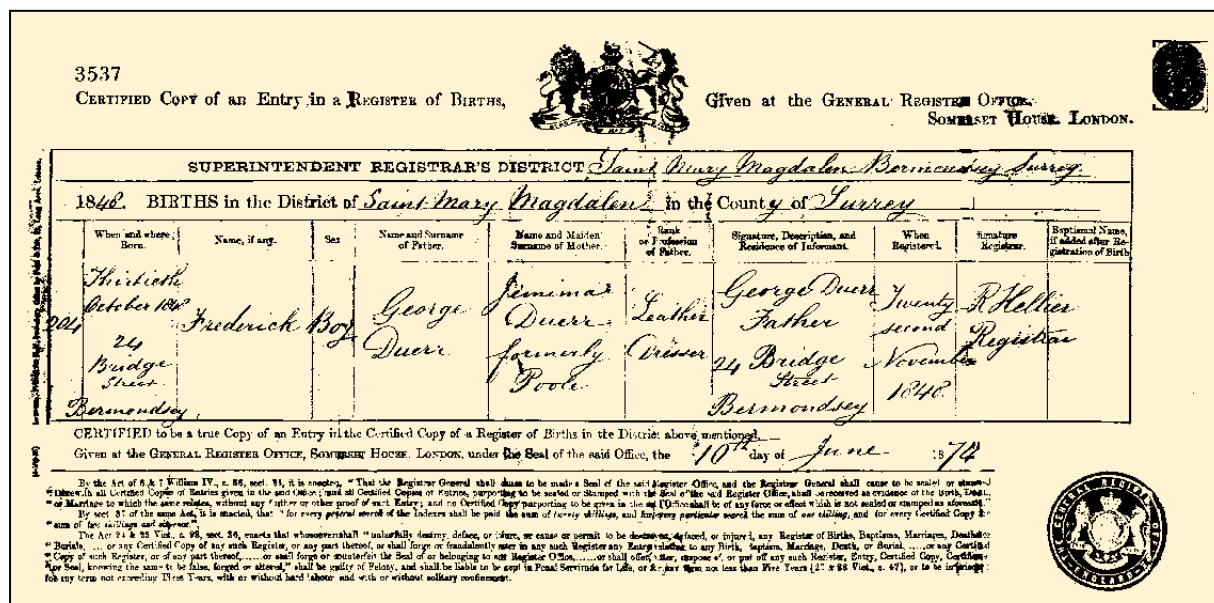 3537
CERTIFIED COPY of an Entry in a REGISTER of BIRTHS,
Given at the GENERAL REGISTER OFFICE,
SOMERSET HOUSE, LONDON.
SUPERINTENDENT REGISTRAR'S DISTRICT Saint Mary Magdalen Bermondsey Surrey
1848. BIRTHS in the District of Saint Mary Magdalen in the County of Surrey
When and where Born.
Name, if any.
Sex
Name and Surname of Father.
Name and Maiden Surname of Mother.
Rank or Profession of Father.
Signature, Description, and Residence of Informant.
When Registered.
Signature Registrar.
Baptismal Name, if added after Registration of Birth
204
Thirtieth
October 1848
24
Bridge
Street
Bermondsey
Frederick
Boy
George
Duerr
Jemima
Duerr
formerly
Poole
Leather
Dresser
George Duerr
Father
24 Bridge
Street
Bermondsey
Twenty
second
November
1848
R Hellier
Registrar
CERTIFIED to be a true Copy of an Entry in the Certified Copy of a Register of Births in the District above mentioned.
Given at the GENERAL REGISTER OFFICE, SOMERSET HOUSE, LONDON, under the Seal of the said Office, the 10th day of June 1874
By the Act of 6 & 7 William IV., c. 86, sec. 38, it is enacted, "That the Registrar General shall cause to be made a Seal of the said Register Office, and the Registrar General shall cause to be sealed or stamped
"therewith all Certified Copies of Entries given in the said Office; and all Certified Copies of Entries, purporting to be sealed or Stamped with the Seal of the said Register Office, shall be received as evidence of the Birth, Death,
"or Marriage to which the same relates, without any further or other proof of such Entry; and no Certified Copy purporting to be given in the said Office shall be of any force or effect which is not sealed or stamped as aforesaid."
By sect 37 of the same Act, it is enacted, that "for every general search of the Indexes shall be paid the sum of twenty shillings, and for every particular search the sum of one shilling, and for every Certified Copy the
"sum of two shillings and sixpence."
The Act 24 & 25 Vict., c. 98, sect. 36, enacts that whosoever shall "unlawfully destroy, deface, or injure, or cause or permit to be destroyed, defaced, or injured, any Register of Births, Baptisms, Marriages, Deaths or
"Burials, .... or any Certified Copy of any such Register, or any part thereof, or shall forge or fraudulently alter in any such Register any Entry relating to any Birth, Baptism, Marriage, Death, or Burial, .... or any Certified
"Copy of such Register, or of any part thereof, ..... or shall forge or counterfeit the Seal of or belonging to any Register Office, ..... or shall offer, utter, dispose of, or put off any such Register, Entry, Certified Copy, Certificate
"or Seal, knowing the same to be false, forged or altered," shall be guilty of Felony, and shall be liable to be kept in Penal Servitude for Life, or for any term not less than Five Years (27 & 28 Vict., c. 47), or to be imprisoned
for any term not exceeding Three Years, with or without hard labour and with or without solitary confinement.